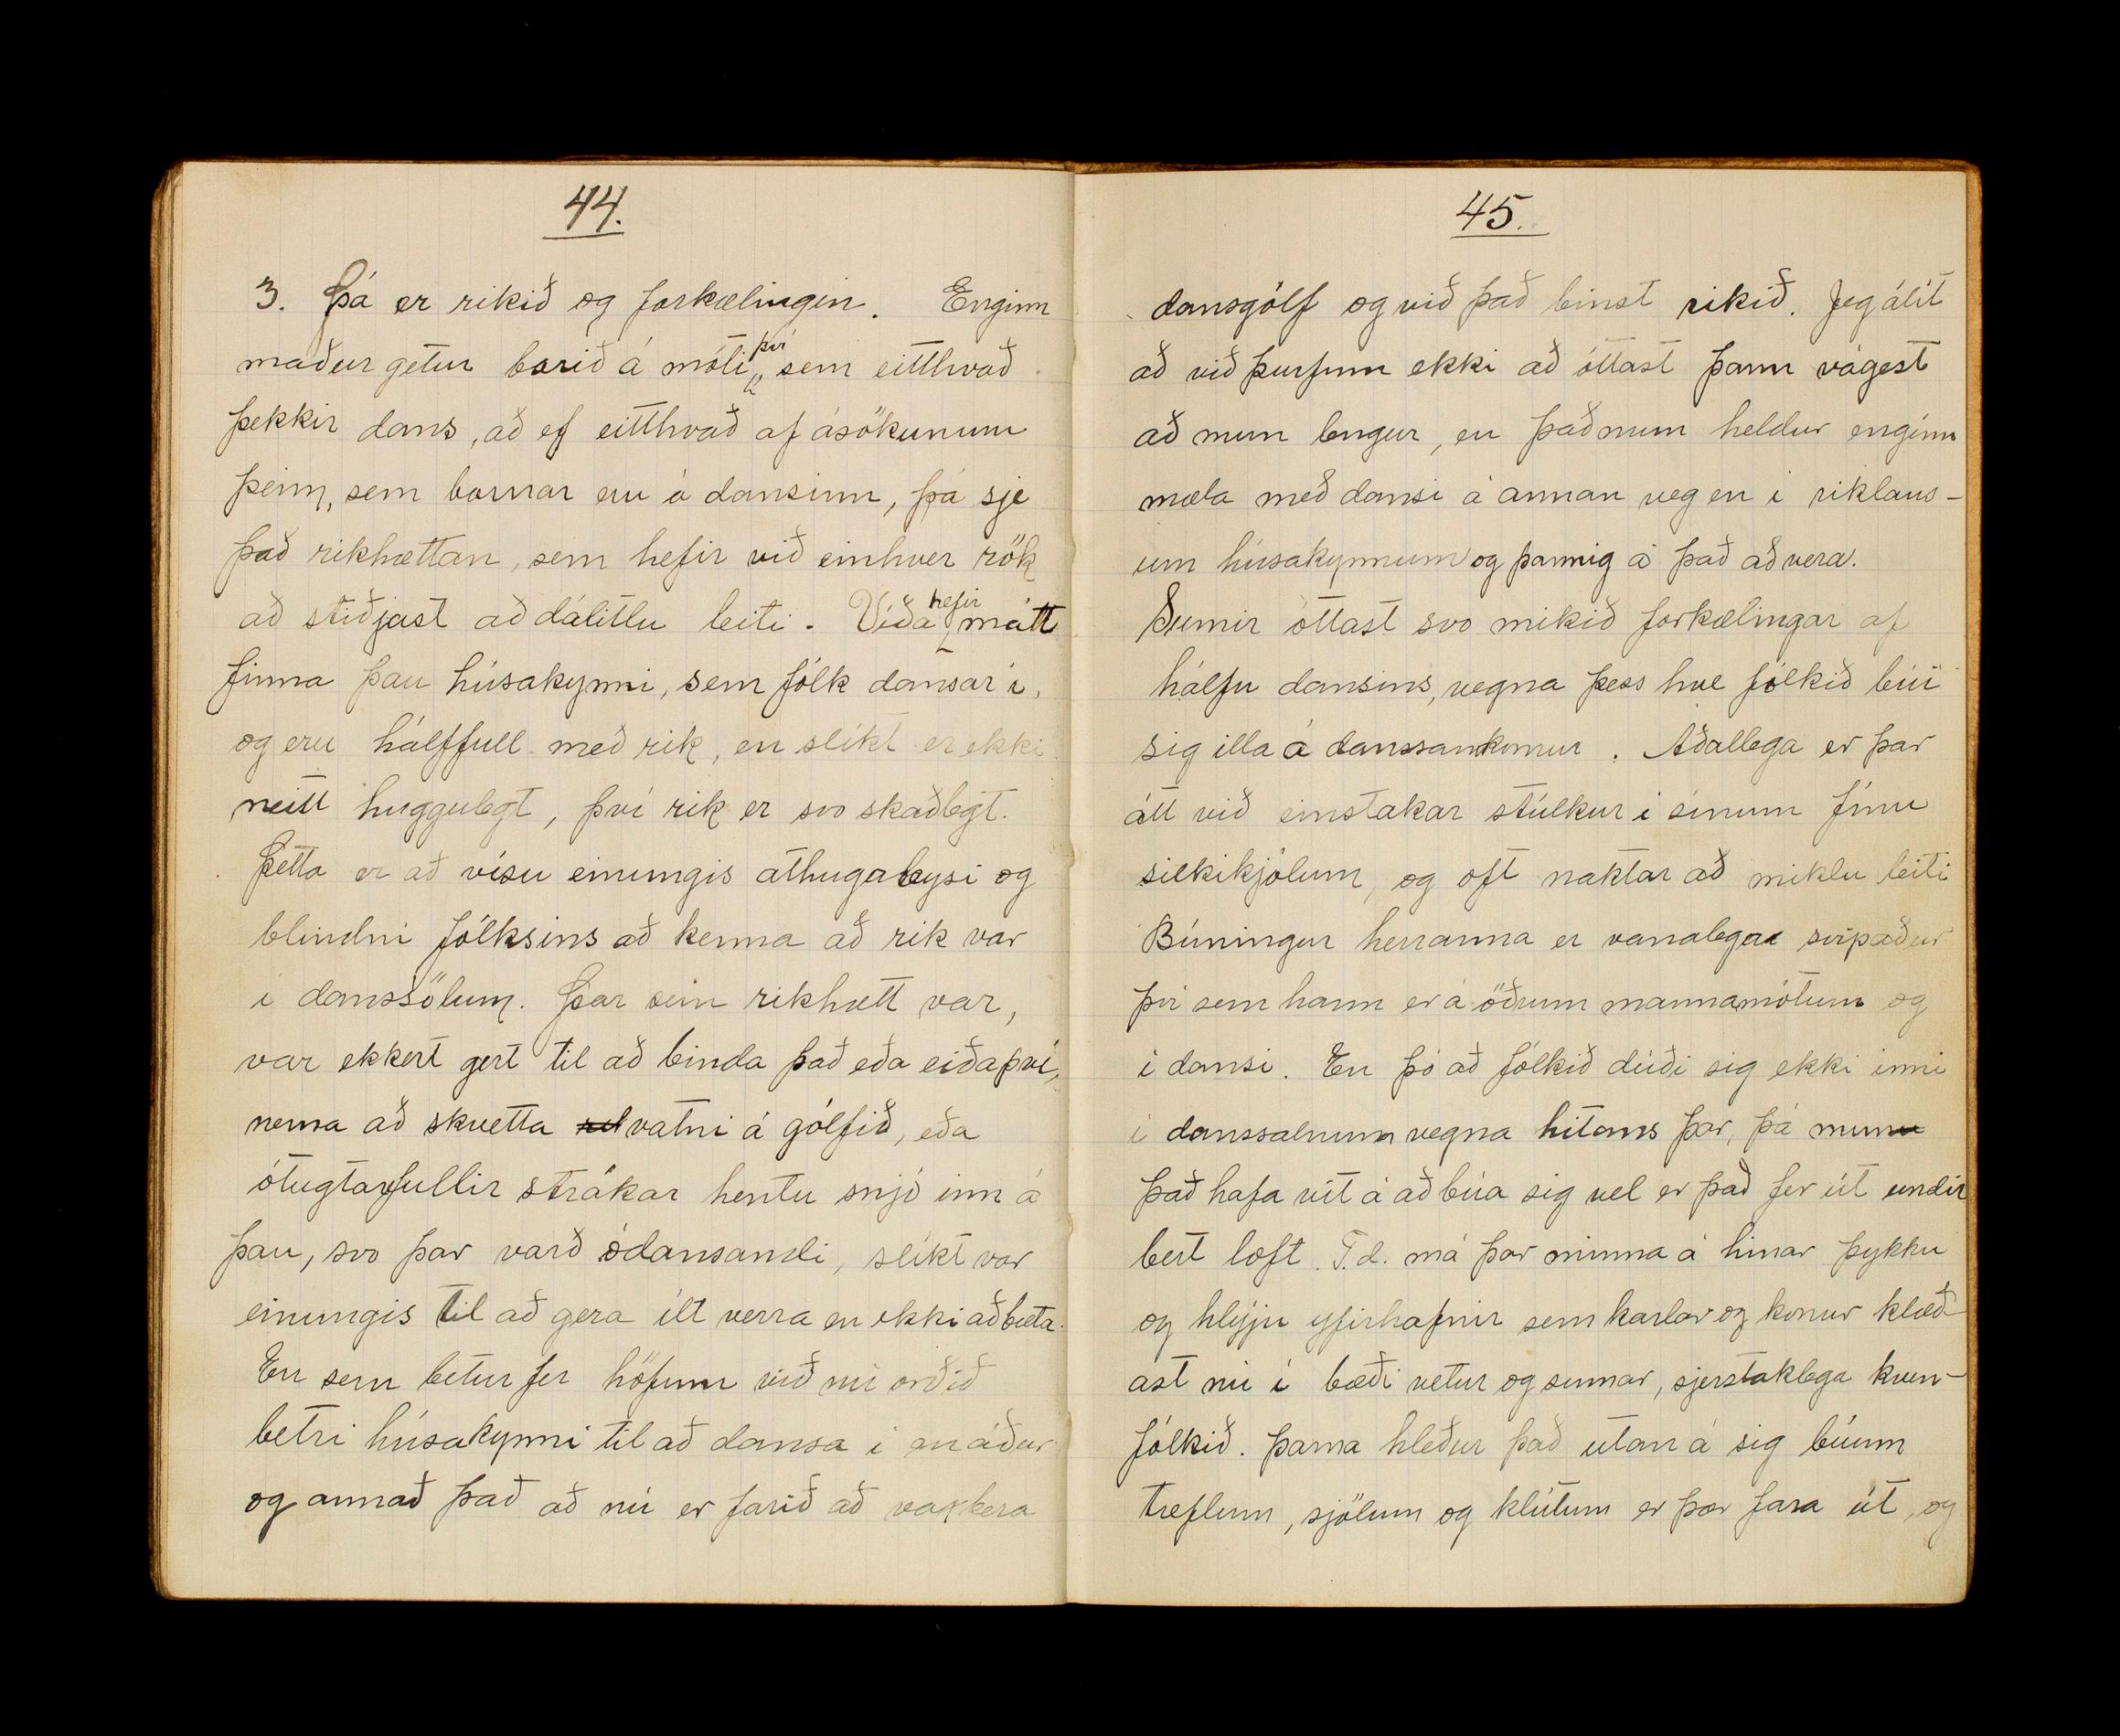 44.
3. Þá er rikið og forkælingin. Enginn
maður getur borið á móti því sem eitthvað
þekkir dans, að ef eitthvað af ásökunum
þeim, sem bornar eru á dansinn, þá sje
það rikhættan, sem hefir við einhver rök
að stiðjast að dálitlu leiti. Víða hefir mátt
finna þau húsakynni, sem fólk dansar í,
og eru hálffull með rik, en slíkt er ekki
neitt huggulegt, því rik er svo skaðlegt.
Þetta er að vísu einungis athugaleysi og
blindni fólksins að kenna að rik var
í danssölum. Þar sem rikhætt var,
var ekkert gert til að binda það eða eiða því,
nema að skvetta vatni á gólfið, eða
ótugtarfullir strákar hentu snjó inn á
þau, svo þar varð ódansandi, slíkt var
einungis til að gera ilt verra en ekki að bæta.
En sem betur fer höfum við nú orðið
betri húsakynni til að dansa í en áður
og annað það að nú er farið að vaxbera
45.
dansgólf og við það binst rikið. Jeg álít
að við þurfum ekki að óttast þann vágest
að mun lengur, en það mun heldur enginn
mæla með dansi á annan veg en í riklaus-
um húsakynnum og þannig á það að vera.
Sumir óttast svo mikið forkælingar af
hálfu dansins, vegna þess hve fólkið búi
sig illa á danssamkomur. Aðallega er þar
átt við einstakar stúlkur í sínum fínu
silkikjólum, og oft naktar að miklu leiti
Búningur herranna er vanalega svipaður
því sem hann er á öðrum mannamótum og
í dansi. En þó að fólkið dúði sig ekki inni
í danssalnum vegna hitans þar, þá mun
það hafa vit á að búa sig vel er það fer út undir
bert loft. T.d. má þar minna á hinar þykku
og hlýju yfirhafnir sem karlar og konur klæð-
ast nú í bæði vetur og sumar, sjerstaklega kven-
fólkið. Þarna hleður það utan á sig búum
treflum, sjölum og klútum er þær fara út, og